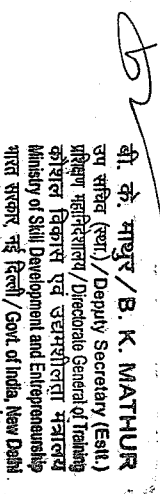 बी. के. माथुर / B. K. MATHUR
उप सचिव (स्था.) / Deputy Secretary (Estt.)
प्रशिक्षण महानिदेशालय / Directorate General of Training
कौशल विकास एवं उद्यमशीलता मंत्रालय
Ministry of Skill Development and Entrepreneurship
भारत सरकार, नई दिल्ली / Govt. of India, New Delhi